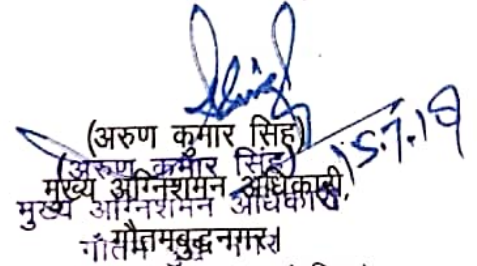 15.7.19
(अरुण कुमार सिंह)
(अरुण कुमार सिंह)
मुख्य अग्निशमन अधिकारी,
मुख्य अग्निशमन अधिकारी
गौतमबुद्धनगर।